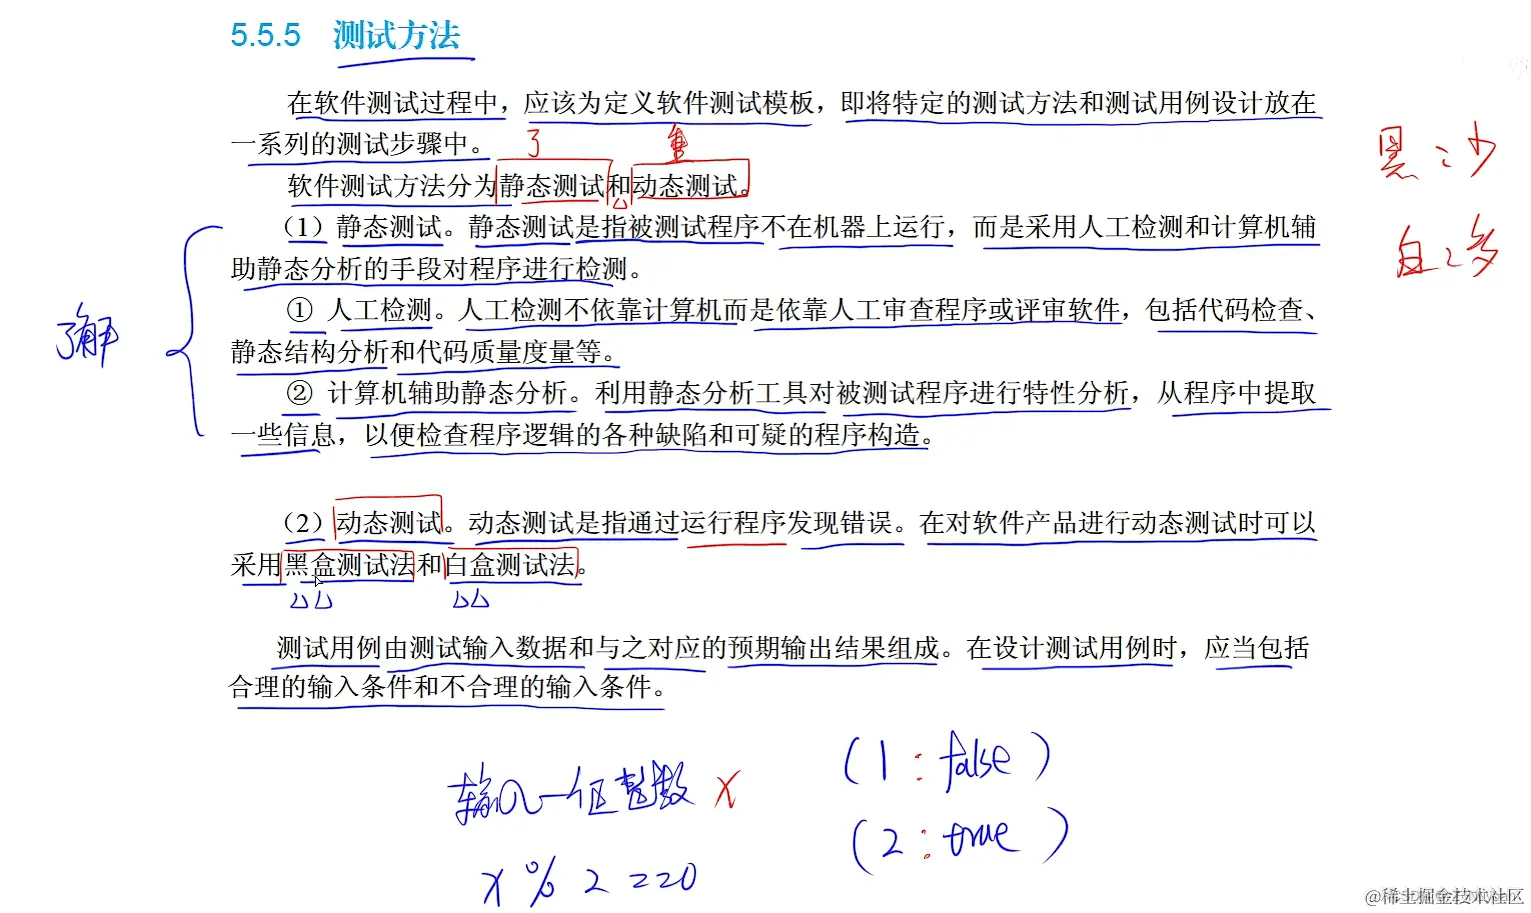 5.5.5 测试方法
在软件测试过程中，应该为定义软件测试模板，即将特定的测试方法和测试用例设计放在
一系列的测试步骤中。
了 重
黑：少
软件测试方法分为静态测试和动态测试。
（1）静态测试。静态测试是指被测试程序不在机器上运行，而是采用人工检测和计算机辅
白：多
助静态分析的手段对程序进行检测。
① 人工检测。人工检测不依靠计算机而是依靠人工审查程序或评审软件，包括代码检查、
了解
静态结构分析和代码质量度量等。
② 计算机辅助静态分析。利用静态分析工具对被测试程序进行特性分析，从程序中提取
一些信息，以便检查程序逻辑的各种缺陷和可疑的程序构造。
（2）动态测试。动态测试是指通过运行程序发现错误。在对软件产品进行动态测试时可以
采用黑盒测试法和白盒测试法。
测试用例由测试输入数据和与之对应的预期输出结果组成。在设计测试用例时，应当包括
合理的输入条件和不合理的输入条件。
输入一个正整数 x
(1：false)
(2：true)
x % 2 == 0
@稀土掘金技术社区